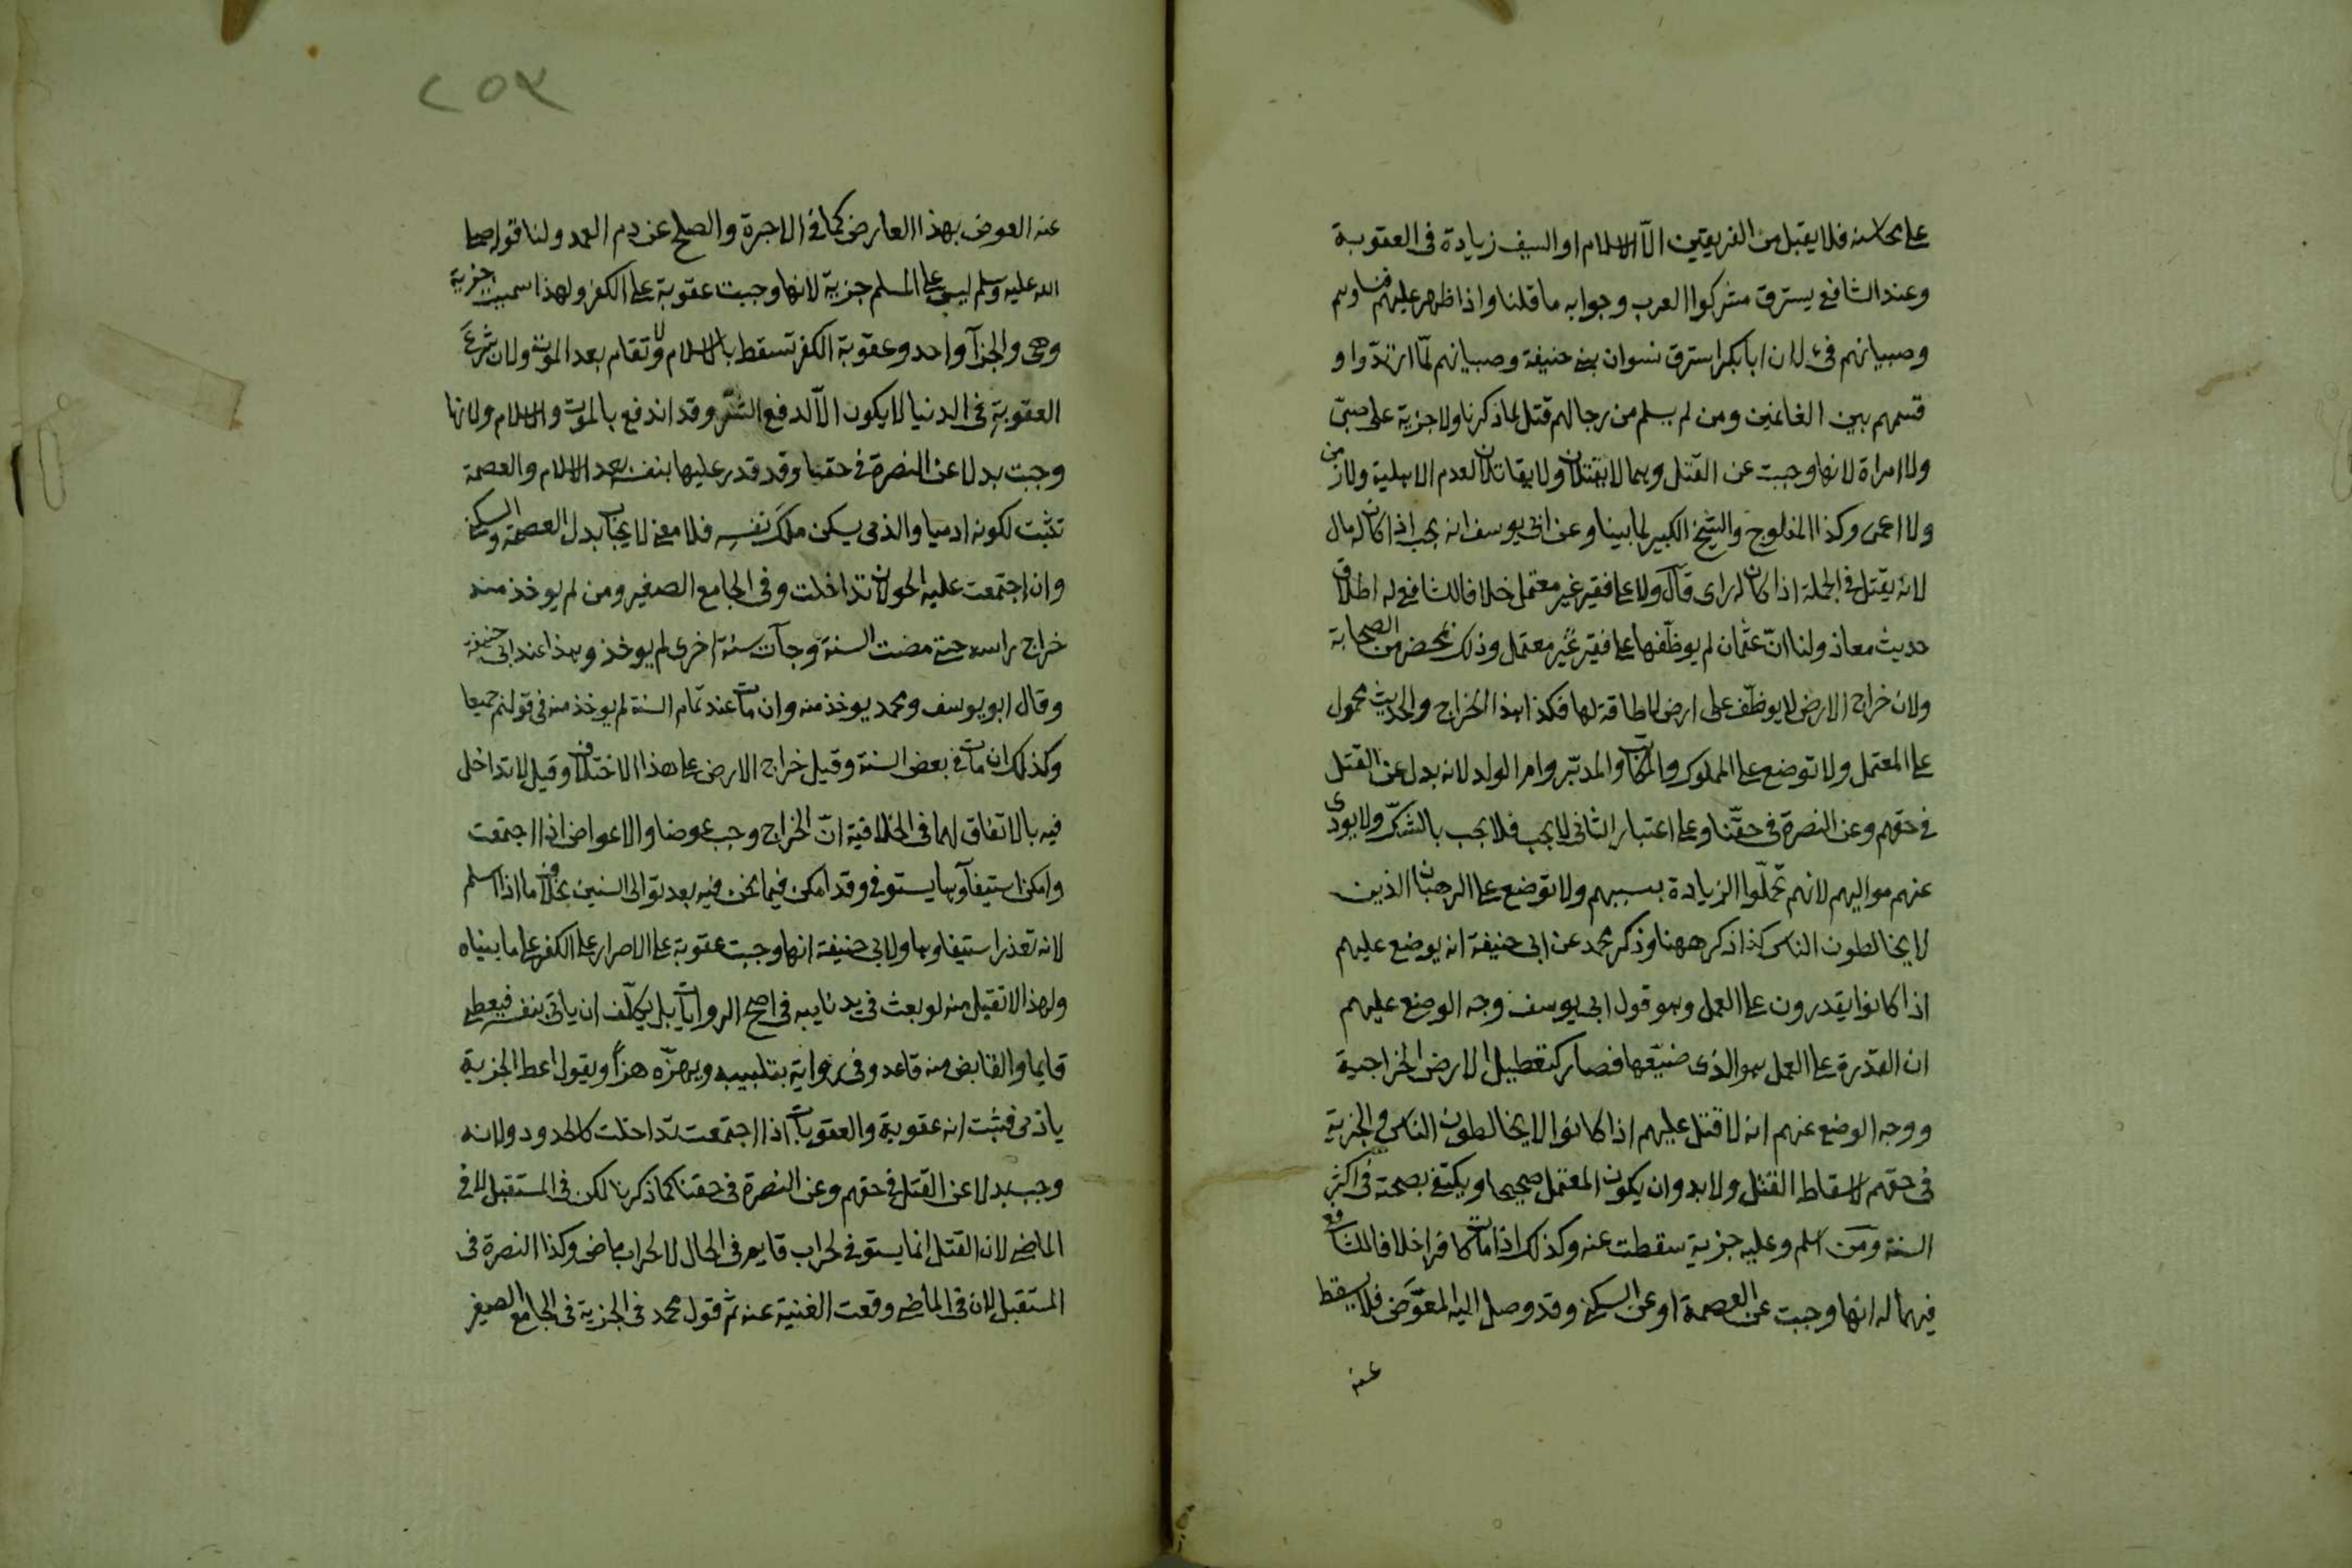 على محاسنه فلا يقبل من الفريقين الّا الاسلام او السيف زيادة فى العقوبة
وعند الشافعى يسترق مشركوا العرب وجوابه ما قلنا واذا ظهر عليهم فنساوهم
وصبيانهم فىء لان ابا بكر استرق نسوان بنى حنيفة وصبيانهم لمّا ارتدّوا و
قسمهم بين الغانمين ومن لم يسلم من رجالهم قتل لما ذكرنا ولا جزية على صبىّ
ولا امراة لانها وجبت عن القتل وهما لا يقتلان ولا يقاتلان لعدم الاهلية ولا زمن
ولا اعمى وكذا المفلوج والشيخ الكبير لما بينا وعن ابى يوسف انه يجب اذا كان له مال
لانه يقتل فى الجملة اذا كان له راى قال ولا على فقير غير معتمل خلافا للشافعى له اطلاق
حديث معاذ ولنا انّ عثمان لم يوظّفها على فقير غير معتمل وذلك بمحضر من الصحابة
ولان خراج الارض لا يوظّف على ارض لا طاقة لها فكذا هذا الخراج والحديث محمول
على المعتمل ولا توضع على المملوك والمكاتب والمدبّر وام الولد لانه بدل عن القتل
فى حقهم وعن النصرة فى حقّنا وعلى اعتبار الثانى لا يجب فلا يجب بالشكّ ولا يودى
عنهم مواليهم لانهم تحمّلوا الزيادة بسببهم ولا توضع على الرهبان الذين
لا يخالطون الناس كذا ذكر ههنا وذكر محمد عن ابى حنيفة انه يوضع عليهم
اذا كانوا يقدرون على العمل وهو قول ابى يوسف وجه الوضع عليهم
ان القدرة على العمل هو الذى ضيّعها فصار كتعطيل الارض الخراجية
ووجه الوضع عنهم انه لا قتل عليهم اذا كانوا لا يخالطون الناس والجزية
فى حقهم لاسقاط القتل ولا بد وان يكون المعتمل صحيحا ويكتفى بصحته فى اكثر
السنة ومن اسلم وعليه جزية سقطت عنه وكذلك اذا مات كافرا خلافا للشافعى
فيهما له انها وجبت عن العصمة او عن السكنى وقد وصل اليه المعوّض فلا يسقط
عنه
٢٥٣
عنه العوض بهذا العارض كما فى الاجرة والصلح عن دم العمد ولنا قوله صلى
الله عليه وسلم ليس على المسلم جزية لانها وجبت عقوبة على الكفر ولهذا سميت جزية
وهى والجزآ واحد وعقوبة الكفر تسقط بالاسلام ولا تقام بعد الموت ولان شرع
العقوبة فى الدنيا لا يكون الّا لدفع الشر وقد اندفع بالموت والاسلام ولانها
وجبت بدلا عن النصرة فى حقنا وقد قدر عليها بنفسه بعد الاسلام والعصمة
تثبت لكونه ادميا والذمى يسكن ملك نفسه فلا معنى لايجاب بدل العصمة والسكنى
وان اجتمعت عليه الحولان تداخلت وفى الجامع الصغير ومن لم يوخذ منه
خراج راسه حتى مضت السنة وجآت سنة اخرى لم يوخذ وهذا عند ابى حنيفة
وقال ابو يوسف ومحمد يوخذ منه وان مات عند تمام السنة لم يوخذ منه فى قولهم جميعا
وكذلك ان مات فى بعض السنة وقيل خراج الارض على هذا الاختلاف وقيل لا تداخل
فيه بالاتفاق لهما فى الخلافية انّ الخراج وجب عوضا والاعواض اذا اجتمعت
وامكن استيفآوها يستوفى وقد امكن فيما نحن فيه بعد توالى السنين بخلاف ما اذا اسلم
لانه تعذر استيفاوها ولابى حنيفة انها وجبت عقوبة على الاصرار على الكفر على ما بيناه
ولهذا لا تقبل منه لو بعث فى يد نايبه فى اصح الروايات بل يكلّف ان ياتى بنفسه فيعطى
قايما والقابض منه قاعد وفى رواية بتلبيبه ويهزّه هزّا ويقول اعط الجزية
يا ذمى فثبت انه عقوبة والعقوبات اذا اجتمعت تداخلت كالحدود ولانه
وجب بدلا عن القتل فى حقهم وعن النصرة فى حقنا كما ذكرنا لكن فى المستقبل لا فى
الماضى لان القتل انما يستوفى لحراب قايم فى الحال لا لحراب ماض وكذا النصرة فى
المستقبل لان فى الماضى وقعت الغنية عنه ثم قول محمد فى الجزية فى الجامع الصغير